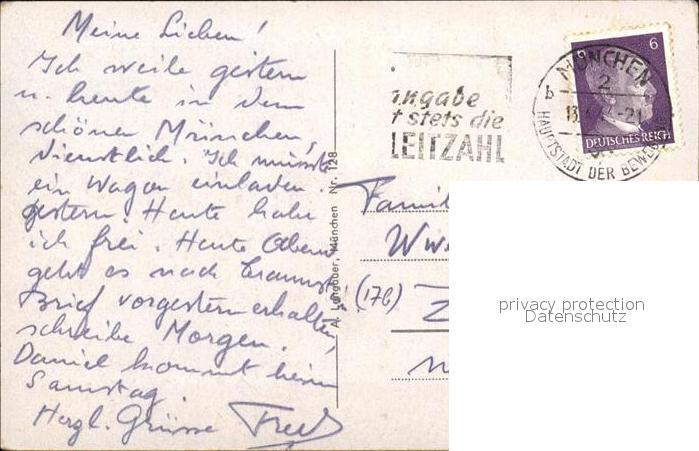 Meine Lieben!
Ich weile gestern
u. heute in dem
schönen München,
dienstlich. Ich musste
ein Wagen einladen
gestern. Heute habe
ich frei. Heute Abend
geht es nach
Brief vorgestern erhalten,
schreibe Morgen.
Daniel kommt heim
Samstag.
Herzl. Grüsse Fred
A. Lengauer, München Nr. 128
ngabe
t stets die
LEITZAHL
MÜNCHEN
2
b
13.
-21
HAUPTSTADT DER BEWEG
6
DEUTSCHES REICH
Famil
(17b)
privacy protection
Datenschutz